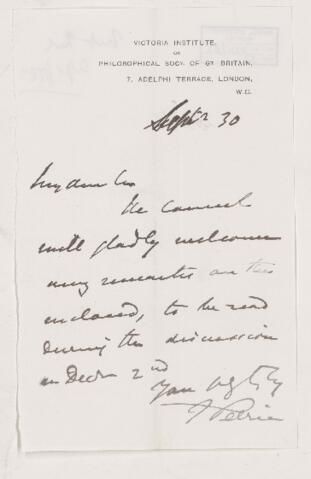 VICTORIA INSTITUTE,
OR
PHILOSOPHICAL SOCY. OF GT. BRITAIN,
7, ADELPHI TERRACE, LONDON,
W.C.
Septr 30
My dear Sir
The Council
will gladly welcome
any remarks on the
enclosed, to be read
during the discussion
on Decbr 2nd
F Petrie